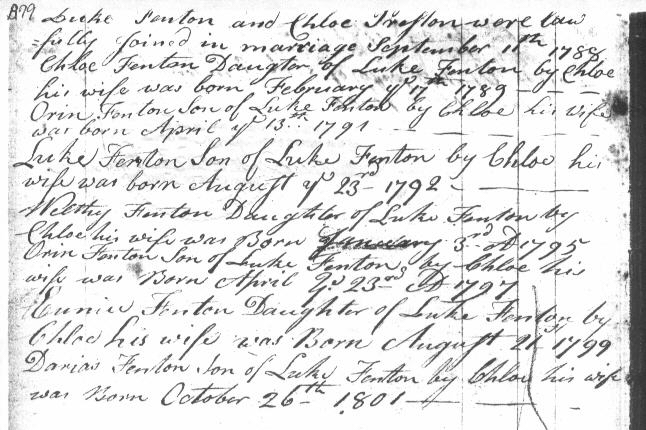 B79
Luke Fenton and Chloe Preston were law
=fully Joined in marriage September 11th 1788
Chloe Fenton Daugter of Luke Fenton by Chloe
his wife was born February ye 17th 1789
Orin Fenton Son of Luke Fenton by Chloe his wife
was born April ye 13th 1791
Luke Fenton Son of Luke Fenton by Chloe his
wife was born August ye 23rd 1792
Welthy Fenton Daughter of Luke Fenton by
Chloe his wife was Born January 3rd AD 1795
Orin Fenton Son of Luke Fenton by Chloe his
wife was Born April ye 23rd AD 1797
Eunice Fenton Daughter of Luke Fenton by
Chloe his wife was Born August 21st 1799
Darias Fenton Son of Luke Fenton by Chloe his wife
was Born October 26th 1801